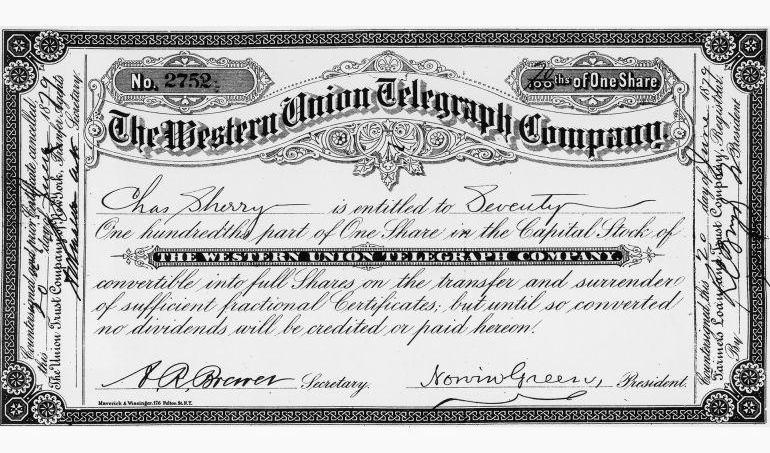 No. 2752.
70/100ths of One Share
The Western Union Telegraph Company.
Chas Sherry is entitled to Seventy
One hundredths part of One Share in the Capital Stock of
THE WESTERN UNION TELEGRAPH COMPANY,
convertible into full Shares on the transfer and surrender
of sufficient fractional Certificates; but until so converted
no dividends will be credited or paid hereon.
A. R. Brewer Secretary. Norvin Green, President.
Maverick & Wissinger, 176 Fulton St. N.Y.
Countersigned and prior Certificate cancelled,
this 20 day of June 1879
The Union Trust Company of New York, Transfer Agents
Secretary.
Countersigned, this 20 day of June 1879
Farmers Loan and Trust Company, Registrar.
By President